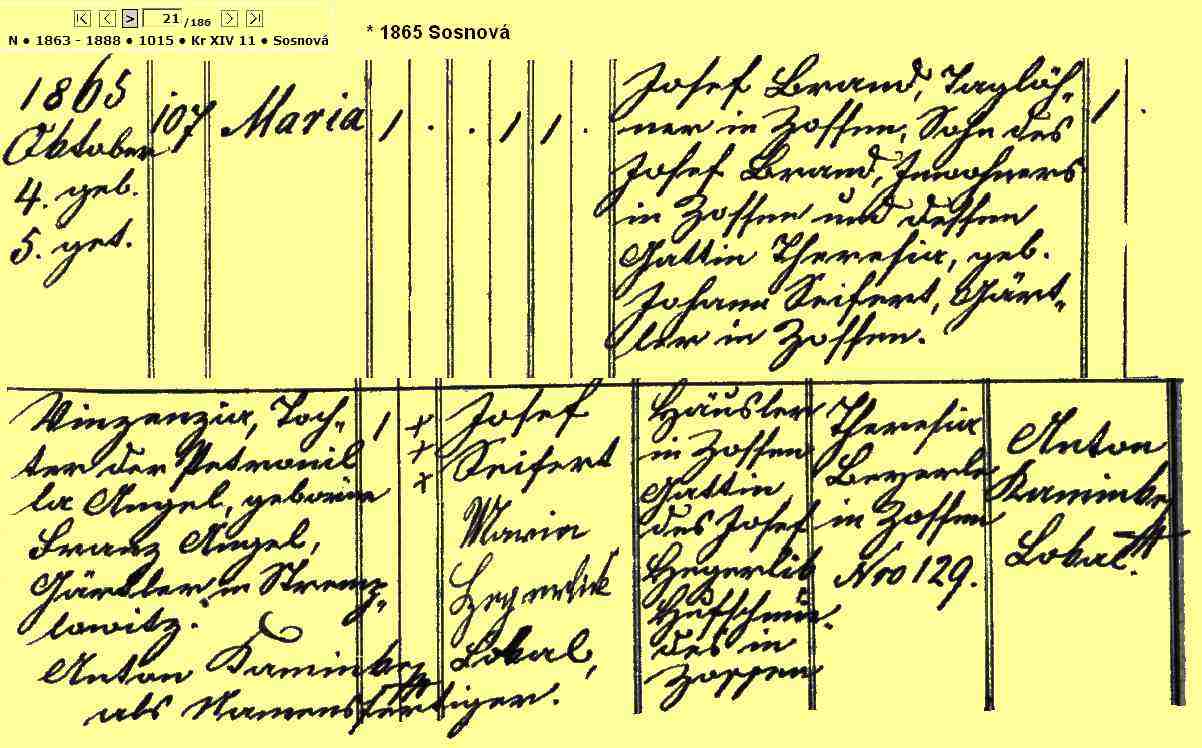 21 /186
N ● 1863 - 1888 ● 1015 ● Kr XIV 11 ● Sosnová
* 1865 Sosnová
1865
Oktober
4. geb.
5. get.
107
Maria
1 . . 1 1 .
Josef Brand, Taglöh-
ner in Zossen, Sohn des
Josef Brand, Inwohners
in Zossen und dessen
Gattin Theresia, geb.
Johann Seifert, Gärt-
ler in Zossen.
1 .
Vinzenzia, Toch-
ter der Petronil
la Angel, geborine
Franz Angel,
Gärtler in
lowitz.
Anton Kaminky
als Namensfertiger.
1
+
+
+
Josef
Seifert
Maria
Hegerlik
Lokal,
Häusler
in Zossen
Gattin
des Josef
Hegerlik
Hufschmie-
des in
Zossen
Theresia
Beyerle
in Zossen
Nro 129.
Anton
Kaminky
Lokal.